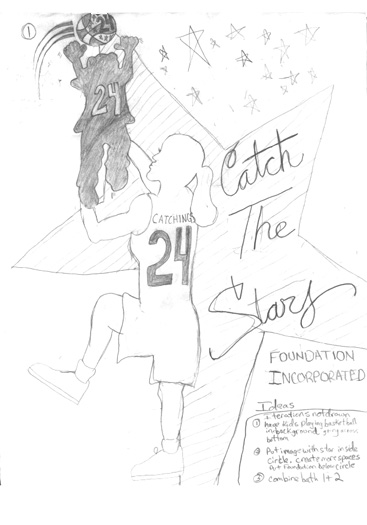 1
24
24
CATCHINGS
24
Catch
The
Stars
FOUNDATION
INCORPORATED
Ideas
iterations not drawn
1 have kids playing basketball
background, going across
bottom
2 Put image with star inside
circle, create more space
Put Foundation below circle
3 combine both 1 + 2